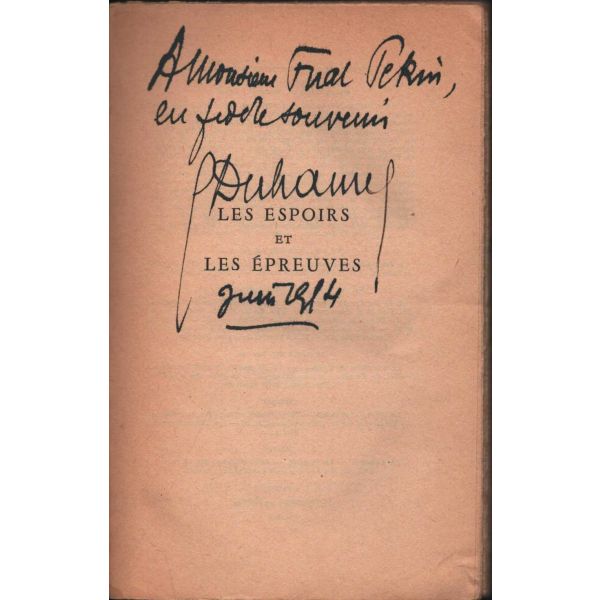 A Monsieur Fuat Pekin,
en fidèle souvenir
GDuhamel
LES ESPOIRS
ET
LES ÉPREUVES
juin 1954